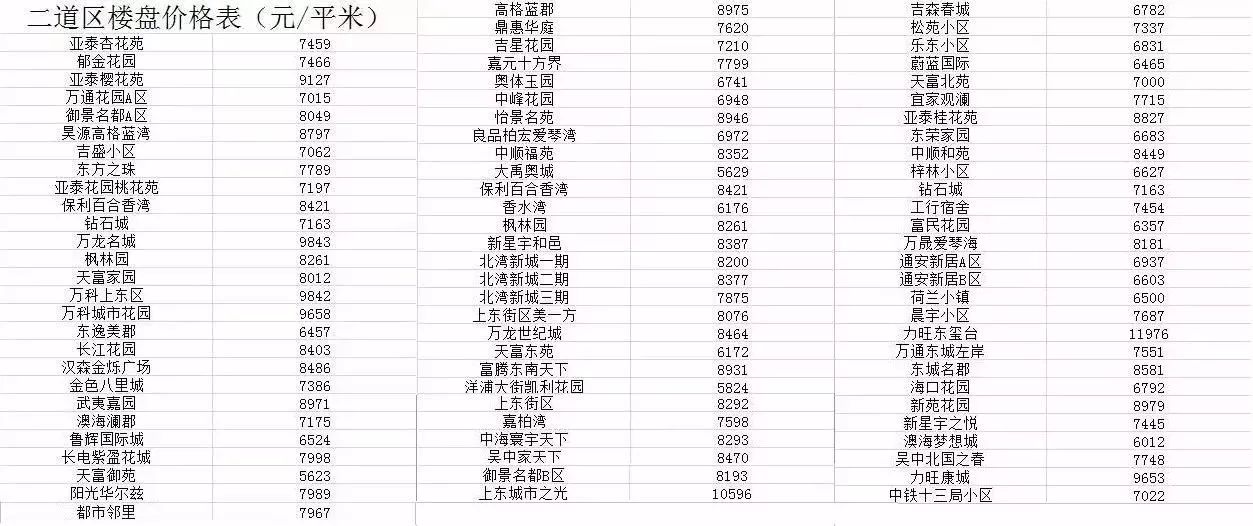 二道区楼盘价格表（元/平米）
亚泰杏花苑 7459
郁金花园 7466
亚泰樱花苑 9127
万通花园A区 7015
御景名都A区 8049
昊源高格蓝湾 8797
吉盛小区 7062
东方之珠 7789
亚泰花园桃花苑 7197
保利百合香湾 8421
钻石城 7163
万龙名城 9843
枫林园 8261
天富家园 8012
万科上东区 9842
万科城市花园 9658
东逸美郡 6457
长江花园 8403
汉森金烁广场 8486
金色八里城 7386
武夷嘉园 8971
澳海澜郡 7175
鲁辉国际城 6524
长电紫盈花城 7998
天富御苑 5623
阳光华尔兹 7989
都市邻里 7967
高格蓝郡 8975
鼎惠华庭 7620
吉星花园 7210
嘉元十方界 7799
奥体玉园 6741
中峰花园 6948
怡景名苑 8946
良品柏宏爱琴湾 6972
中顺福苑 8352
大禹奥城 5629
保利百合香湾 8421
香水湾 6176
枫林园 8261
新星宇和邑 8387
北湾新城一期 8200
北湾新城二期 8377
北湾新城三期 7875
上东街区美一方 8076
万龙世纪城 8464
天富东苑 6172
富腾东南天下 8931
洋浦大街凯利花园 5824
上东街区 8292
嘉柏湾 7598
中海寰宇天下 8293
吴中家天下 8470
御景名都B区 8193
上东城市之光 10596
吉森春城 6782
松苑小区 7337
乐东小区 6831
蔚蓝国际 6465
天富北苑 7000
宜家观澜 7715
亚泰桂花苑 8827
东荣家园 6683
中顺和苑 8449
梓林小区 6627
钻石城 7163
工行宿舍 7454
富民花园 6357
万晟爱琴海 8181
通安新居A区 6937
通安新居B区 6603
荷兰小镇 6500
晨宇小区 7687
力旺东玺台 11976
万通东城左岸 7551
东城名郡 8581
海口花园 6792
新苑花园 8979
新星宇之悦 7445
澳海梦想城 6012
吴中北国之春 7748
力旺康城 9653
中铁十三局小区 7022